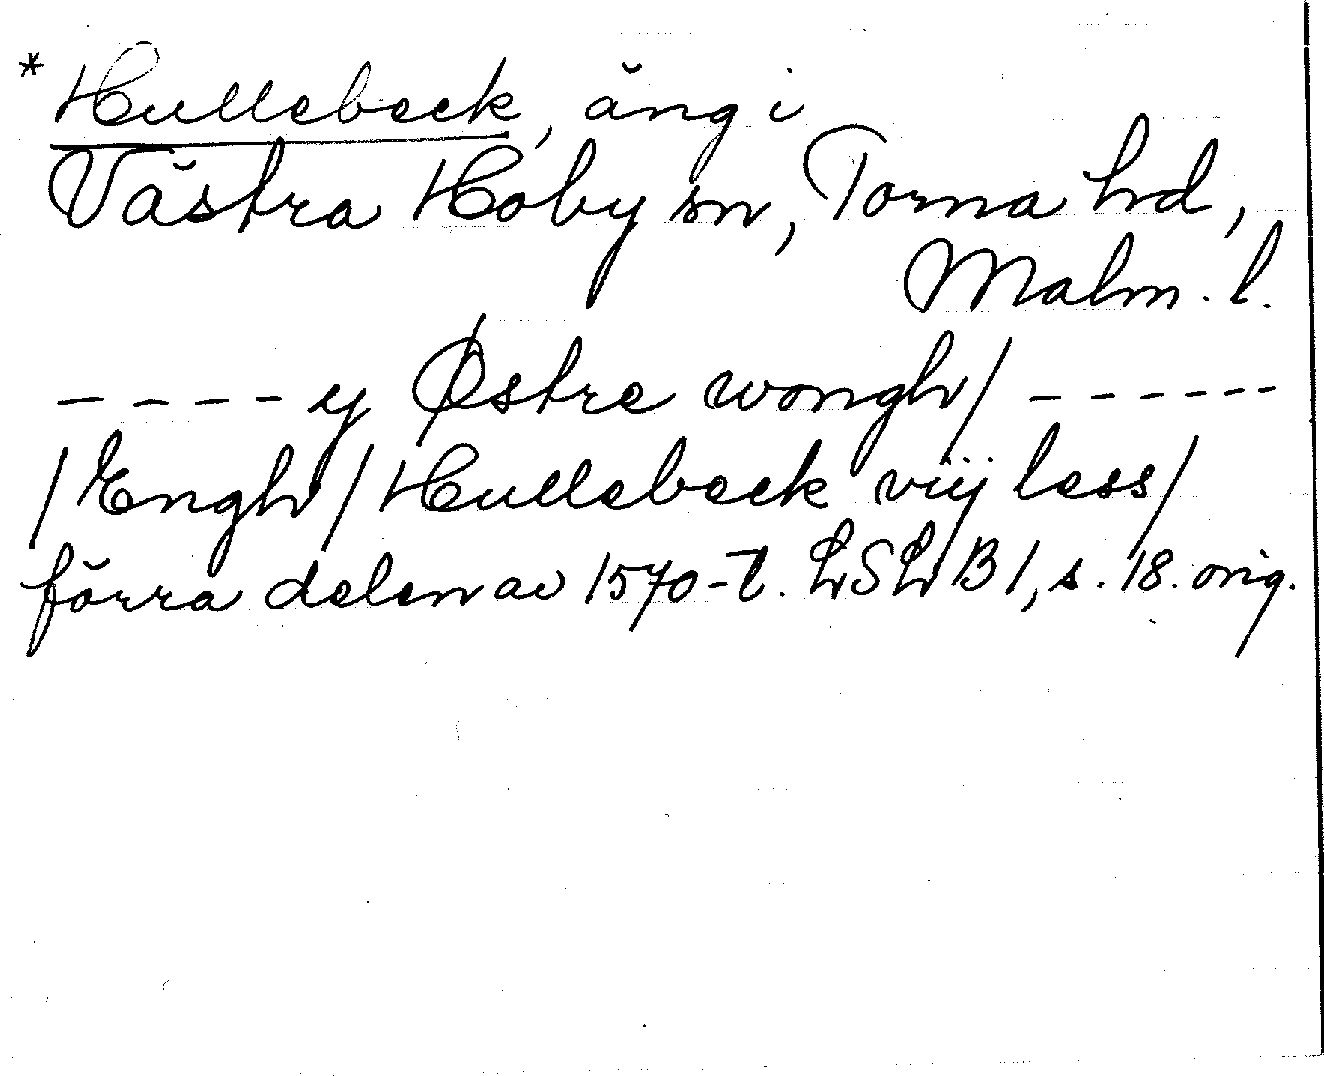 * Hullebeck, äng i
Västra Hoby sn, Torna hd,
Malm. l.
- - - - y Østre wongh / - - - - - -
/ Engh / Hullebeck viij less /
förra delen av 1570-t. LSLB 1, s. 18. orig.